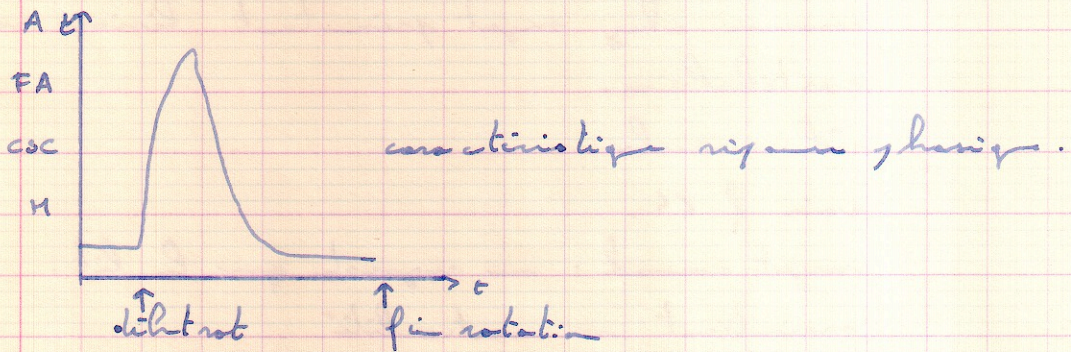 A
FA
CSC
M
caractéristique réponse phasique.
t
début rot
fin rotation